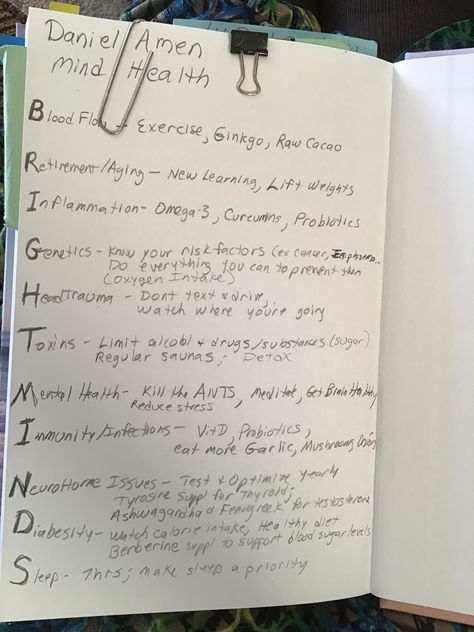 Daniel Amen
Mind Health
Blood Flow - Exercise, Ginkgo, Raw Cacao
Retirement/Aging - New Learning, Lift Weights
Inflammation - Omega-3, Curcumins, Probiotics
Genetics - Know your risk factors (ex cancer,
Do everything you can to prevent them
(oxygen Intake)
Head Trauma - Dont text & drive,
watch where you're going
Toxins - Limit alcohol & drugs/substances (sugar)
Regular saunas; Detox
Mental Health - Kill the ANTS, Meditate, Get Brain Healthy
Reduce stress
Immunity/Infections - Vit D, Probiotics,
eat more Garlic, Mushrooms, Onions
NeuroHorme Issues - Test & Optimize yearly
Tyrosine suppl for Thyroid;
Ashwagandha & Fenugreek for testosterone
Diabesity - watch calorie intake, Healthy diet
Berberine suppl to support blood sugar levels
Sleep - 7hrs; make sleep a priority